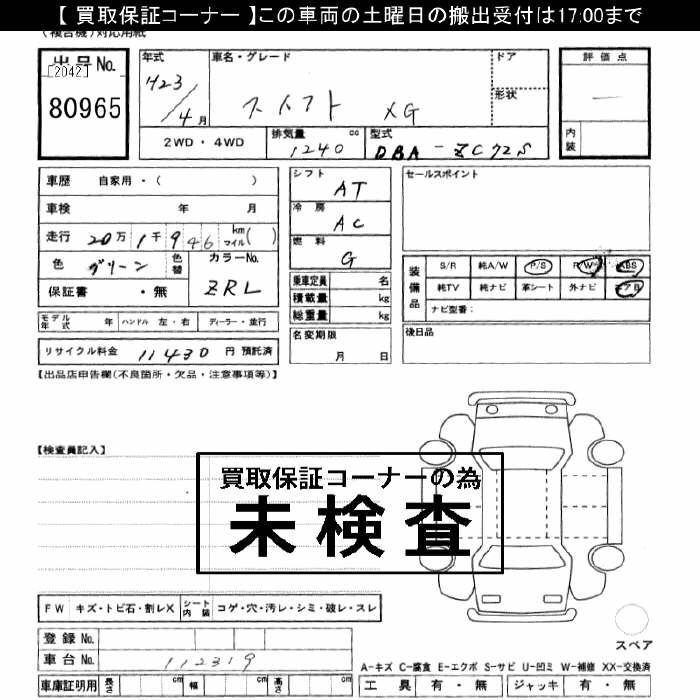 【 買取保証コーナー 】この車両の土曜日の搬出受付は17:00まで
(複合機)対応用紙
出品No.
[2042]
80965
年式
H23/4月
車名・グレード
スイフト XG
ドア
形状
評価点
内装
2WD・4WD
排気量 1240 cc
型式 DBA-ZC72S
車歴 自家用・( )
車検 年 月
走行 20万1千946 km マイル( )
色 グリーン
色替
カラーNo. ZRL
保証書 ・無
モデル年式 年 ハンドル 左・右 ディーラー・並行
リサイクル料金 11430 円 預託済
シフト AT
冷房 AC
燃料 G
乗車定員 名
積載量 kg
総重量 kg
名変期限
月 日
セールスポイント
装備品
S/R 純A/W P/S P/W ABS
純TV 純ナビ 革シート 外ナビ エアB
ナビ型番:
後日品
【出品店申告欄(不良箇所・欠品・注意事項等)】
【検査員記入】
買取保証コーナーの為
未検査
FW キズ・トビ石・割レX シート内装 コゲ・穴・汚レ・シミ・破レ・スレ
登録No.
車台No. 112319
車庫証明用 長さ cm 幅 cm 高さ cm
スペア
A-キズ C-腐食 E-エクボ S-サビ U-凹ミ W-補修 XX-交換済
工具 有・無 ジャッキ 有・無